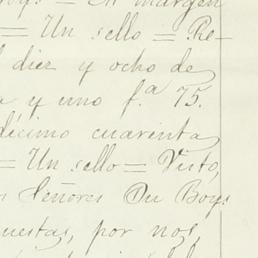 Boys = En margen
= Un sello = Re-
l diez y ocho de
a y uno f.ª 75.
décimo cuarenta
= Un sello = Visto,
s Señores Du Boys
uestas, por nos